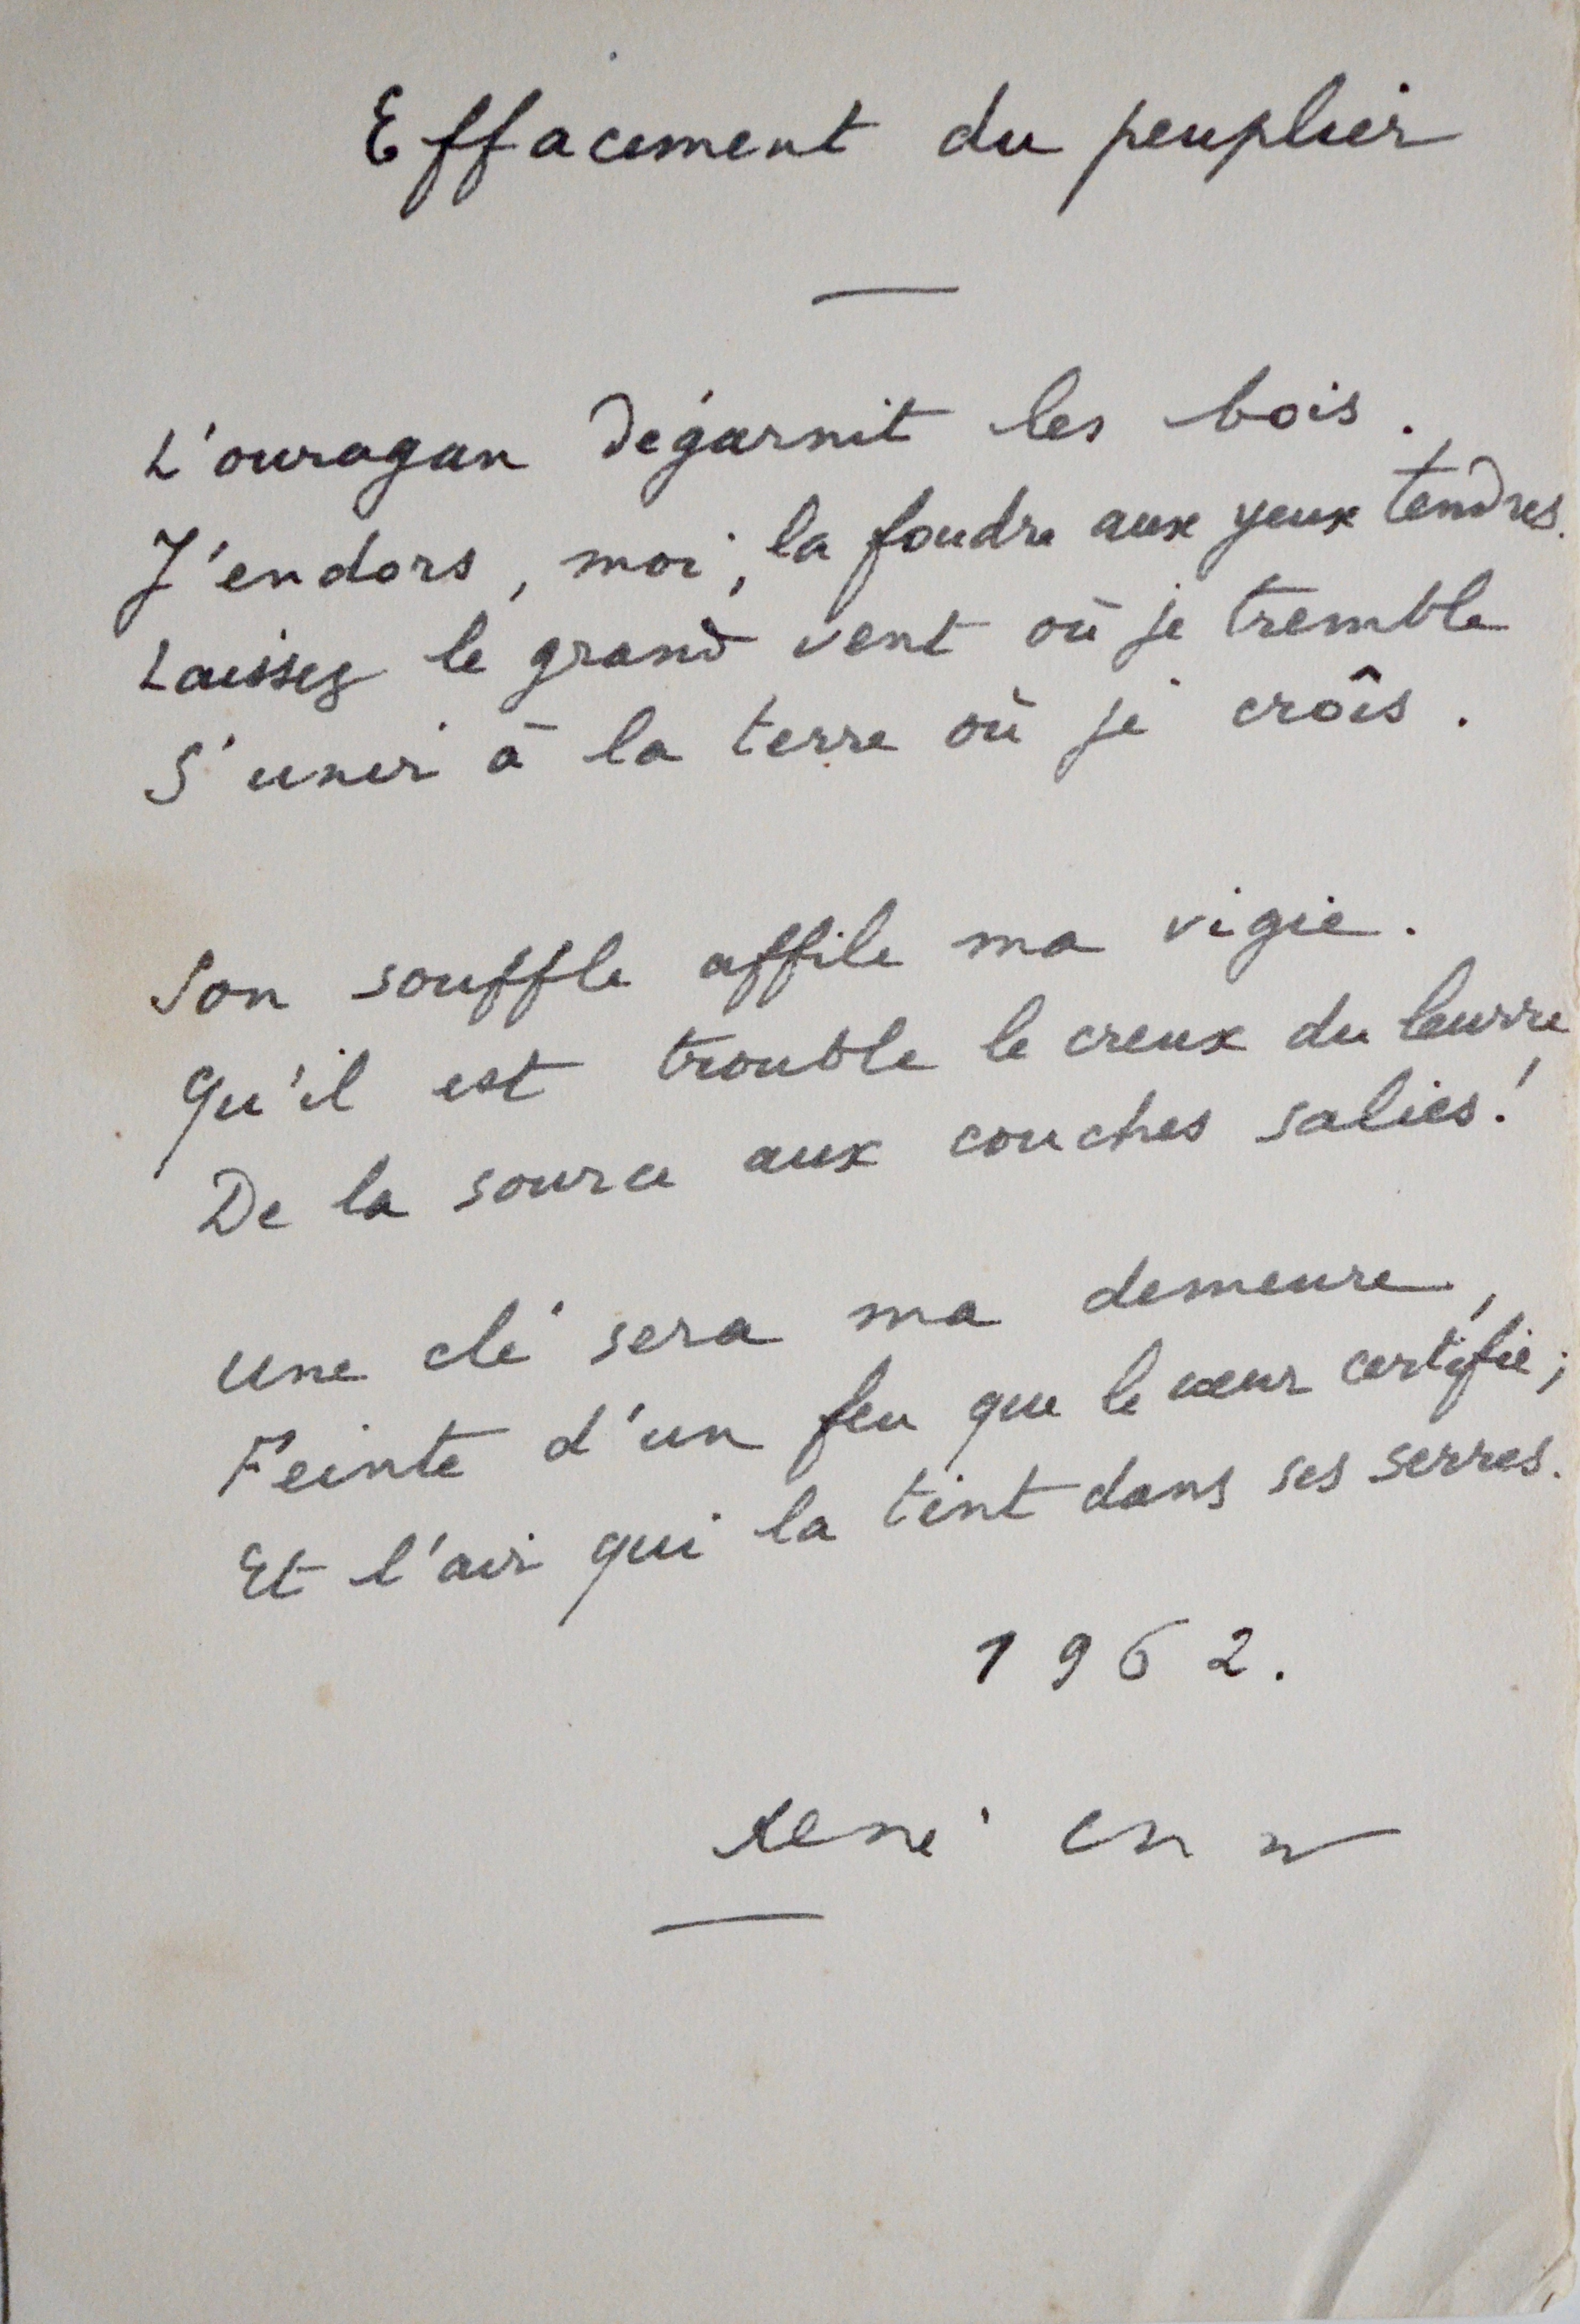 Effacement du peuplier
L'ouragan dégarnit les bois.
J'endors, moi, la foudre aux yeux tendres.
Laissez le grand vent où je tremble
S'unir à la terre où je croîs.
Son souffle affile ma vigie.
Qu'il est trouble le creux du leurre
De la source aux couches salies!
Une clé sera ma demeure,
Feinte d'un feu que le cœur certifie;
Et l'air qui la tint dans ses serres.
1962.
René Char